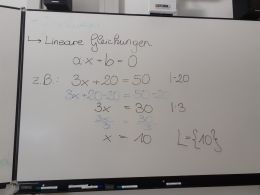 → Lineare Gleichungen
ax + b = 0
z.B.: 3x + 20 = 50 |-20
3x+20-20 = 50-20
3x = 30 |:3
3x/3 = 30/3
x = 10 L={10}